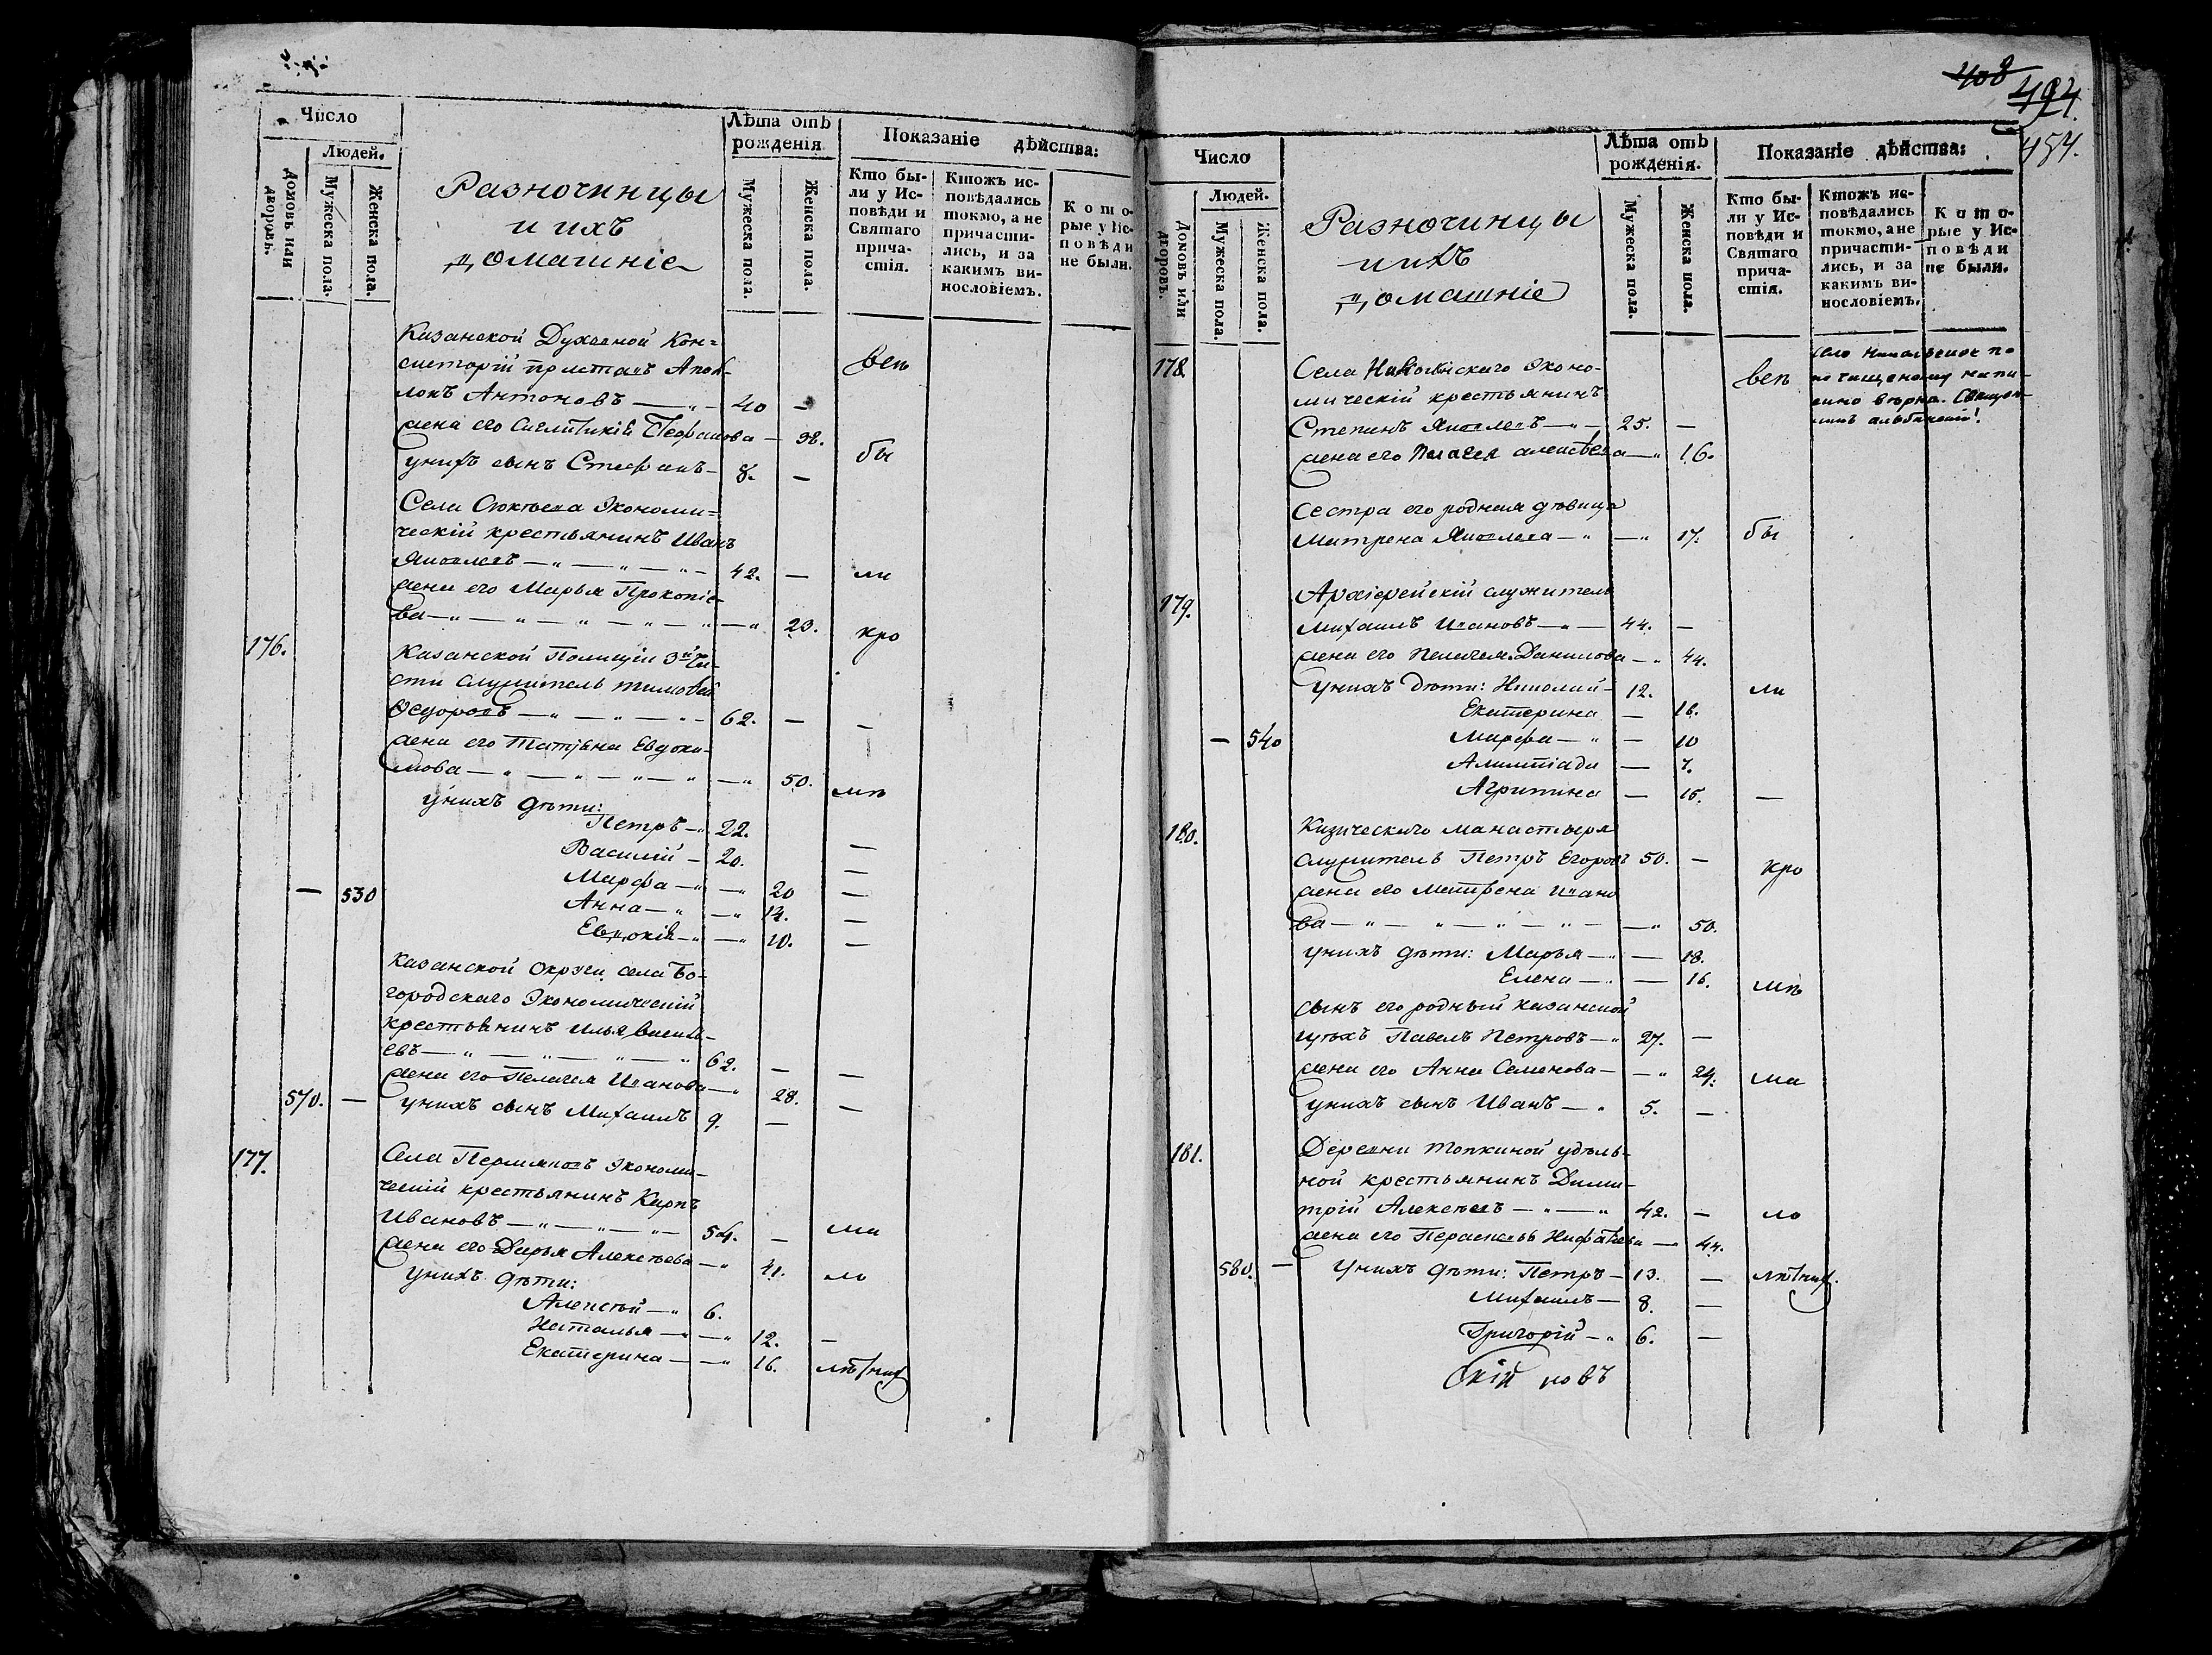 Число
Людей.
Домовъ или дворовъ.
Мужеска пола.
Женска пола.
Разночинцы
и ихъ
домашніе
Лѣта отъ
рожденія
Мужеска пола.
Женска пола.
Показаніе дѣйства:
Кто бы-
ли у Ис-
повѣди и
Святаго
прича-
стія.
Ктожъ ис-
повѣдались
токмо, а не
причасти-
лись, и за
какимъ ви-
нословіемъ.
Кото-
рые у Ис-
повѣди
не были.
Казанской Духовной Кон=
систоріи приставъ Апол-
лонъ Антоновъ — 40 —
жена его — 38.
у нихъ сынъ Стефанъ — 8. —
веп
бы
Села Сюкѣева Экономи=
ческій крестьянинъ Иванъ
Яковлевъ — 42. — ли
жена его Марья Прокопіе-
ва — 23. кро
176. Казанской Полиціи 3й Ча-
сти служитель Тимофей
Ѳедоровъ — 62. — —
жена его Татьяна Евдоки-
мова — 50. мѣ
у нихъ дѣти:
Петръ — 22.
Василій — 20. —
Марфа — 20 —
— 530 Анна — 14. —
Евдокія — 10. —
Казанской округи села Бо-
городскаго Экономическій
крестьянинъ Илья Василь-
евъ — 62. — —
жена его Пелагея Иванова — 28. —
570. — у нихъ сынъ Михаилъ 9. —
177. Села Экономи-
ческій крестьянинъ Карпъ
Ивановъ — 54. — ма
жена его Дарья Алексѣева — 41. ло
у нихъ дѣти:
Алексѣй — 6.
Наталья — 12. —
Екатерина — 16. лѣтних
408
494.
454.
Число
Людей.
Домовъ или дворовъ.
Мужеска пола
Женска пола.
Разночинцы
и ихъ
домашніе
Лѣта отъ
рожденія.
Мужеска пола.
Женска пола.
Показаніе дѣйства:
Кто бы-
ли у Ис-
повѣди и
Святаго
прича-
стія.
Ктожъ ис-
повѣдались
токмо, а не
причасти-
лись, и за
какимъ ви-
нословіемъ.
Кото-
рые у Ис-
повѣди
не были.
178. Села Никольскаго Эконо-
мическій крестьянинъ
Степанъ Яковлевъ — 25. —
жена его Пелагея Алексѣева — 16.
веп
село Никольское по
по чищеному напи-
сано вѣрно. Священ-
никъ
Сестра его родная дѣвица
Матрена Яковлева — 17. бы
179. Архіерейскій служитель
Михаилъ Ивановъ — 44. —
жена его Пелагея Данилова — 44.
у нихъ дѣти: Николай — 12. ли
Екатерина — 18.
— 540 Марфа — 10
Алимпіада — 7.
Агрипина — 15. —
180. Кизическаго манастыря
служитель Петръ Егоровъ 50. — кро
жена его Матрена Ивано
ва — 50.
у нихъ дѣти: Марья — 18.
Елена — 16. мѣ
сынъ его родный казанской
цѣхъ Павелъ Петровъ — 27. —
жена его Анна Семенова — 24. ма
у нихъ сынъ Иванъ — 5. —
181. Деревни Топкиной удѣль-
ной крестьянинъ Дими-
трій Алексѣевъ — 42. — ло
жена его — 44.
580. — у нихъ дѣти: Петръ — 13. — лѣтних.
Михаилъ — 8. —
Григорій — 6. —
скій ковъ